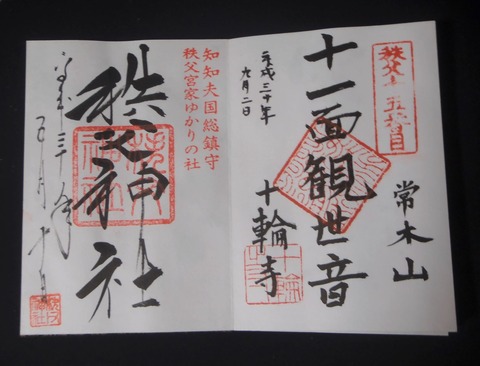 秩父
常木山
十一面観世音
十輪寺
平成三十年
九月二日
知知夫国総鎮守
秩父宮家ゆかりの社
秩父神社
秩父神社
平成三十年